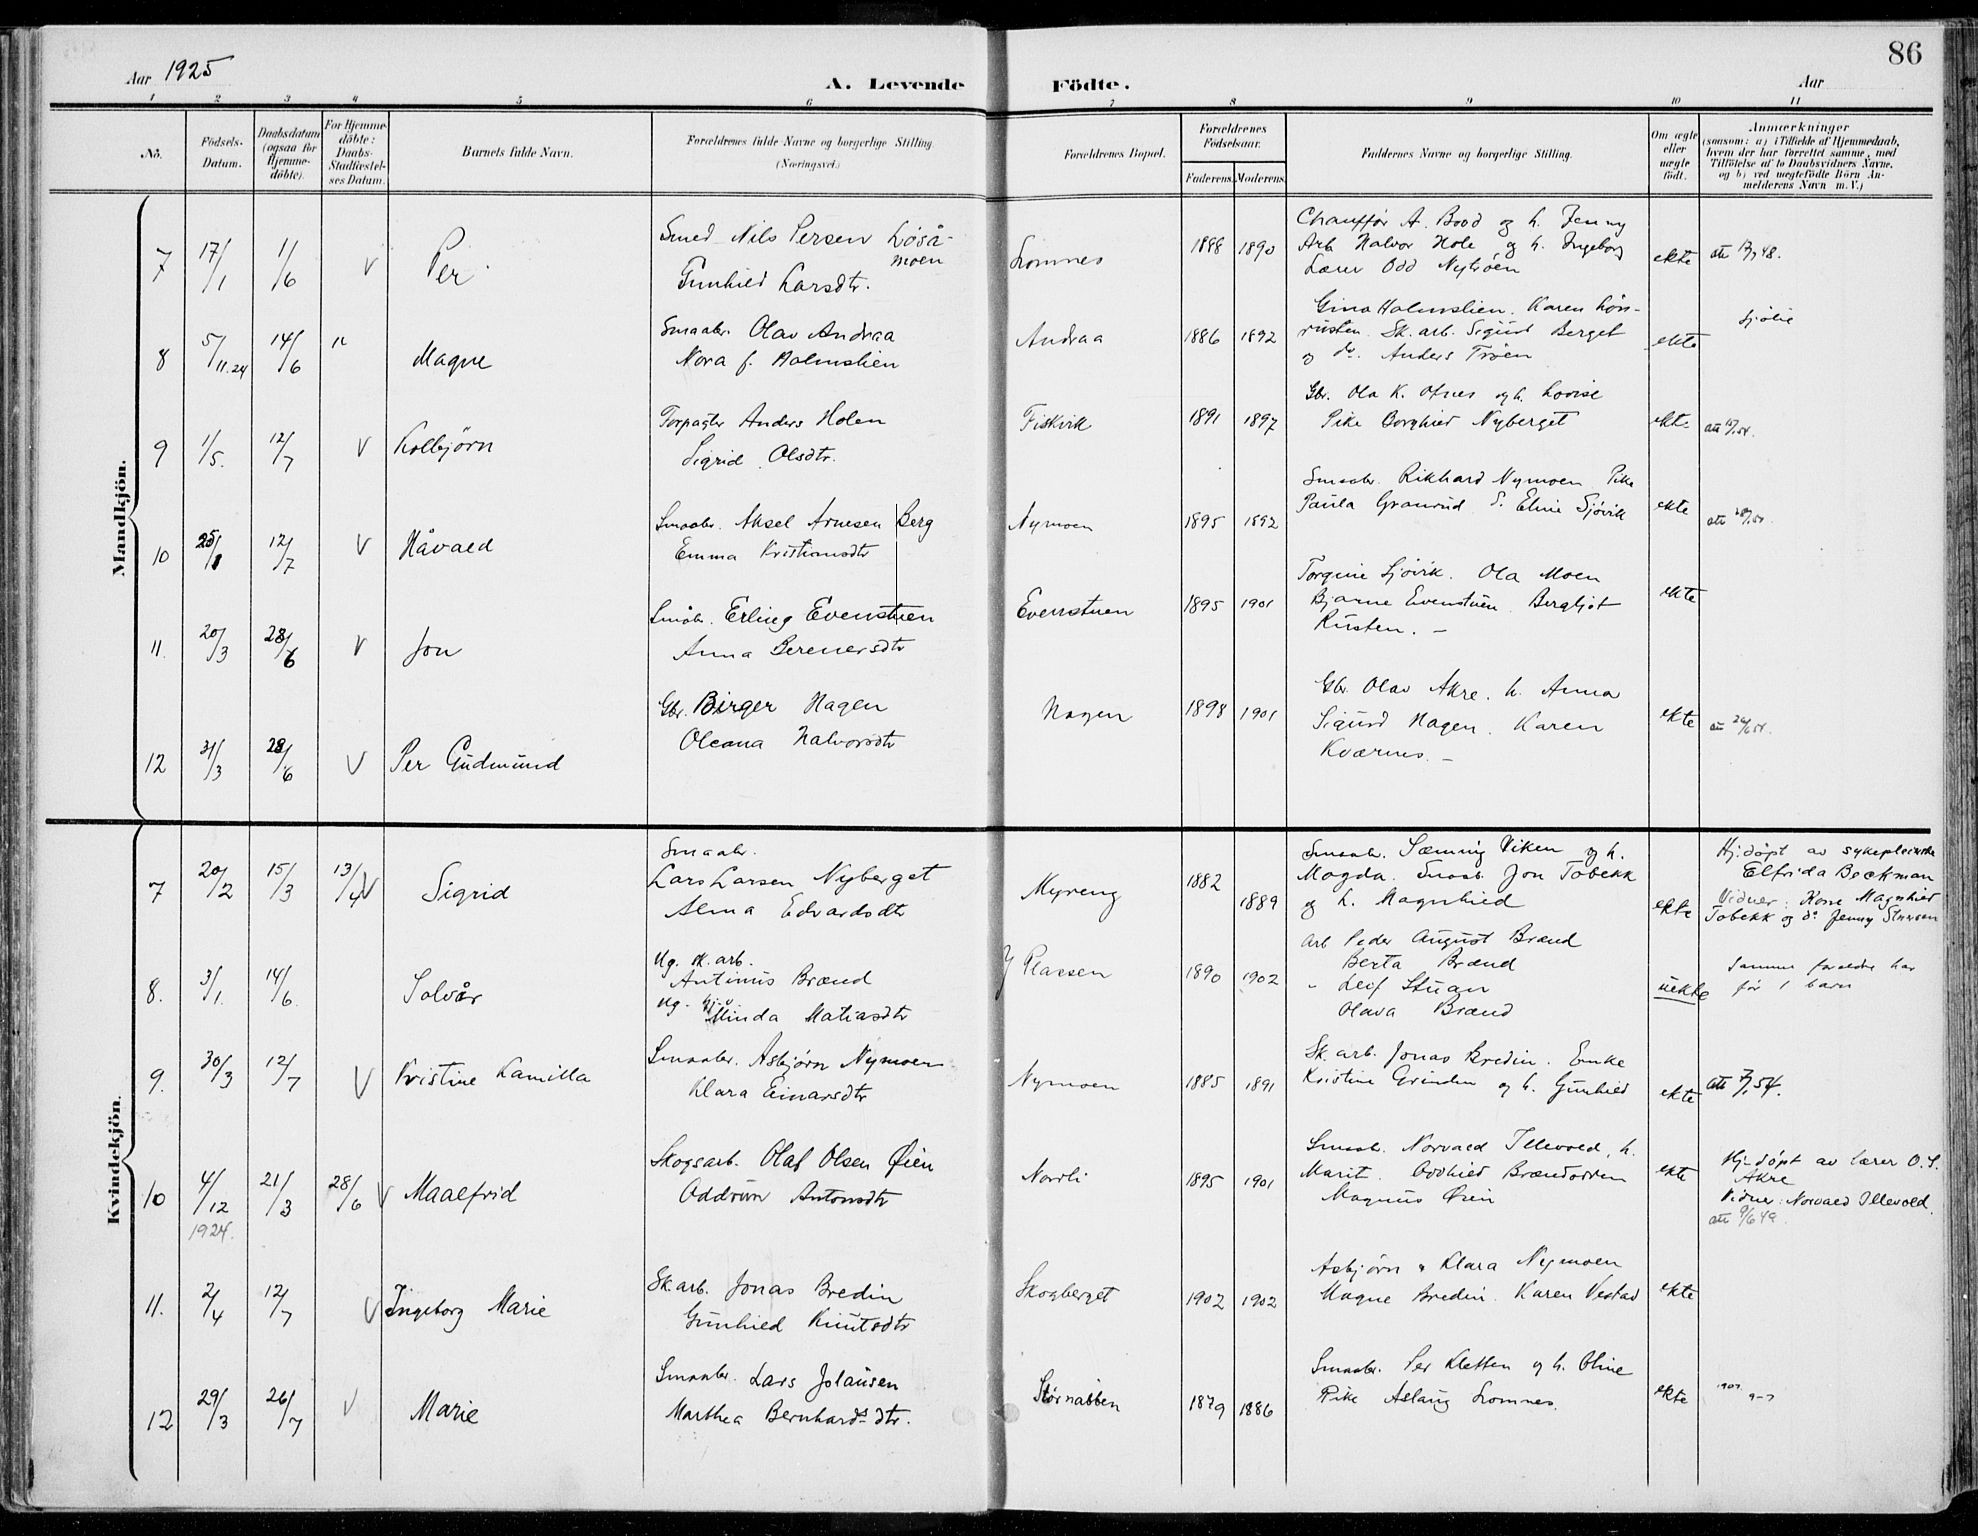 86
Aar 1925
A. Levende Födte.
Aar
1 2 3 4 5 6 7 8 9 10 11
No. Födsels-Datum. Daabsdatum (ogsaa for Hjemme-döbte). For Hjemme-döbte: Daabs-Stadfæstel-ses Datum. Barnets fulde Navn. Forældrenes fulde Navne og borgerlige Stilling. (Næringsvei.) Forældrenes Bopæl. Forældrenes Födselsaar. Faderens. Moderens. Faddernes Navne og borgerlige Stilling. Om ægte eller uægte födt. Anmærkninger
(saasom: a) i Tilfælde af Hjemmedaab,
hvem der har forrettet samme, med
Tilföielse af to Daabsvidners Navne,
og b) ved uægtefödte Börn An-
melderens Navn m.V.)
Mandkjön.
7 17/1 1/6 V Per
Smed Nils Persen Løså-
moen
Gunhild Larsdtr.
Lomnes 1888 1890
Chauffør A. Bood og h. Jenny
Arb Halvor Hole og h. Ingeborg
Lærer Odd Nytrøen
ekte
8 5/11.24 14/6 " Magne
Smaabr. Olav Andraa
Nora f. Holmslien
Andraa 1886 1892
Gina Holmslien. Karen Løn-
rusten. Sk. arb. Sigurd Berget
og do. Anders Trøen
ekte Sjølie
9 1/5. 12/7 V Kolbjörn
Forpagter Anders Holen
Sigrid Olsdtr.
Fiskvik 1891 1897
Gbr. Ola K. Ofnes og h. Lovise
Pike Borghild Nyberget
ekte
10 25/1 12/7 V Håvald
Smaabr. Aksel Arnesen Berg
Emma Kristiansdtr
Nymoen 1895 1892
Smaabr. Rikhard Nymoen Pike
Paula Granrud S. Eline Sjøvik
ekte
11. 20/3 28/6 V Jon
Småbr. Erling Evenstuen
Anna Berenersdtr
Evenstuen 1895 1901
Torgine Sjøvik. Ola Moen
Bjarne Evenstuen. Bergljot
Rusten. –
ekte
12 31/3 28/6 V Per Gudmund
Gbr. Birger Hagen
Oleana Halvorsdtr
Hagen 1898 1901
Gbr. Olav Akre. h. Anna
Sigurd Hagen. Karen
Kværnes. –
ekte
Kvindekjön.
7 20/2 15/3 13/4 V Sigrid
Smaabr.
Lars Larsen Nyberget
Alma Edvardsdtr
Myreng 1882 1889
Smaabr. Sæming Viken og h.
Magda. Smab. Jon Tobekk
og h. Magnhild
ekte
Hj.døpt av sykepleierske
Elfrida Beckman
Vidner: Kone Magnhild
Tobekk og do Jenny Stensen
8. 3/1. 14/6. Solvår
Ug. sk. arb.
Antinius Brænd
ug.
Minda Matiasdtr
Plassen 1890 1902
Arb Peder August Brænd
Berta Brænd
" Leif Stuan
Olava Brænd
uekte
Samme foreldre har
før 1 barn
9. 30/3 12/7 V Kristine Kamilla
Smaabr. Asbjørn Nymoen
Klara Einarsdtr
Nymoen 1885 1891
Sk. arb. Jonas Bredin. Enke
Kristine Grinden og h. Gunhild
ekte
10 4/12 21/3 28/6 V Maalfrid
1924.
Skogsarb. Olaf Olsen Øien
Oddrun Antonsdtr
Nordli 1895 1901
Smaab. Norvald Illevold, h.
Marit. Oddhild Brændodden
Magnus Øien
ekte
Hj.døpt av lærer O. S.
Akre
Vidner: Norvald Illevold.
att 9/6 49.
11. 2/4 12/7 V Ingeborg Marie
Sk arb. Jonas Bredin
Gunhild Knutsdtr
Skogberget 1902 1902
Asbjørn & Klara Nymoen
Magne Bredin. Karen Vestad
ekte
12 29/3 26/7 V Marie
Smaabr. Lars Jolausen
Marthea Bernhardsdtr.
Størnabben 1879 1886
Smaabr. Per Kletten og h. Oline
Pike Aslaug Lomnes.
ekte